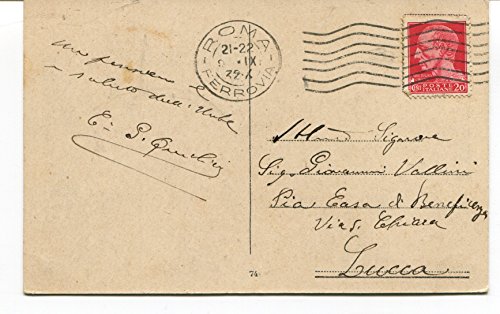 Un pensiero e
un saluto dall'Urbe
ROMA
FERROVIA
21-22
IX
POSTE
ITALIANE
20
Ill.mo Signore
Sig. Giovanni Vallini
Pia Casa di Beneficenza
Via S. Chiara
Lucca
74